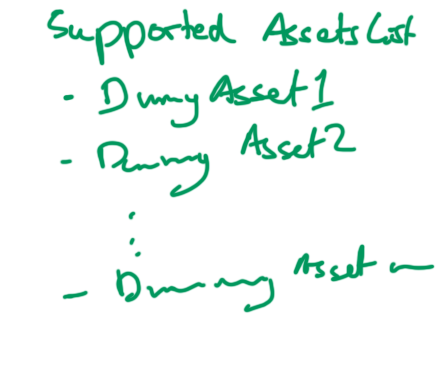 Supported Assets List
- Dummy Asset 1
- Dummy Asset 2
⋮
- Dummy Asset n